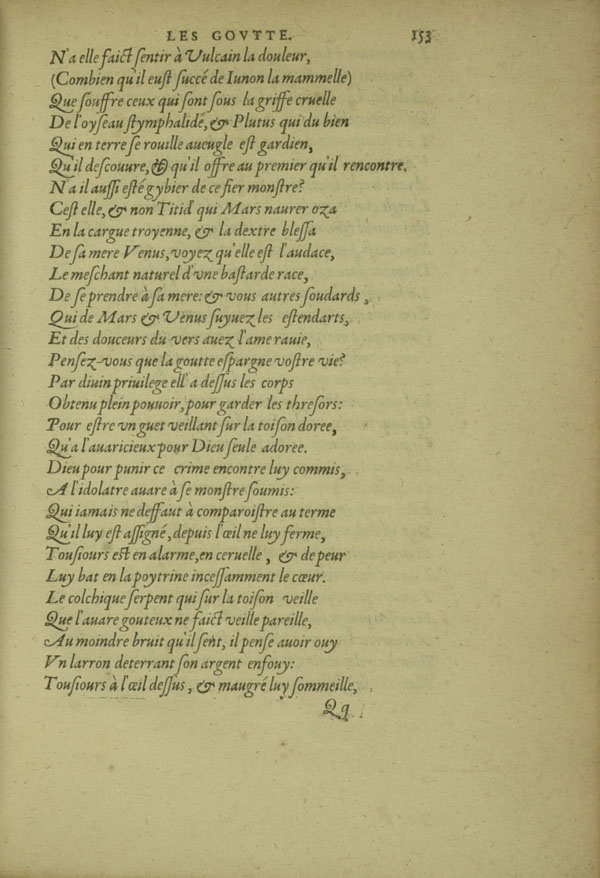 LES GOVTTE. 153
N'a elle faict sentir à Vulcain la douleur,
(Combien qu'il eust succé de Iunon la mammelle)
Que souffre ceux qui sont sous la griffe cruelle
De l'oyseau stymphalide, & Plutus qui du bien
Qui en terre se rouille aueugle est gardien,
Qu'il descouure, & qu'il offre au premier qu'il rencontre.
N'a il aussi esté gybier de ce fier monstre?
Cest elle, & non Titid' qui Mars naurer oza
En la cargue troyenne, & la dextre blessa
De sa mere Venus, voyez qu'elle est l'audace,
Le meschant naturel d'vne bastarde race,
De se prendre à sa mere: & vous autres soudards,
Qui de Mars & Venus suyuez les estendarts,
Et des douceurs du vers auez l'ame rauie,
Pensez-vous que la goutte espargne vostre vie?
Par diuin priuilege ell' a dessus les corps
Obtenu plein pouuoir, pour garder les thresors:
Pour estre vn guet veillant sur la toison doree,
Qu'a l'auaricieux pour Dieu seule adoree.
Dieu pour punir ce crime encontre luy commis,
A l'idolatre auare à se monstre soumis:
Qui iamais ne deffaut à comparoistre au terme
Qu'il luy est assigné, depuis l'œil ne luy ferme,
Tousiours est en alarme, en ceruelle, & de peur
Luy bat en la poytrine incessamment le cœur.
Le colchique serpent qui sur la toison veille
Que l'auare gouteux ne faict veille pareille,
Au moindre bruit qu'il sent, il pense auoir ouy
Vn larron deterrant son argent enfouy:
Tousiours à l'œil dessus, & maugré luy sommeille,
Qq